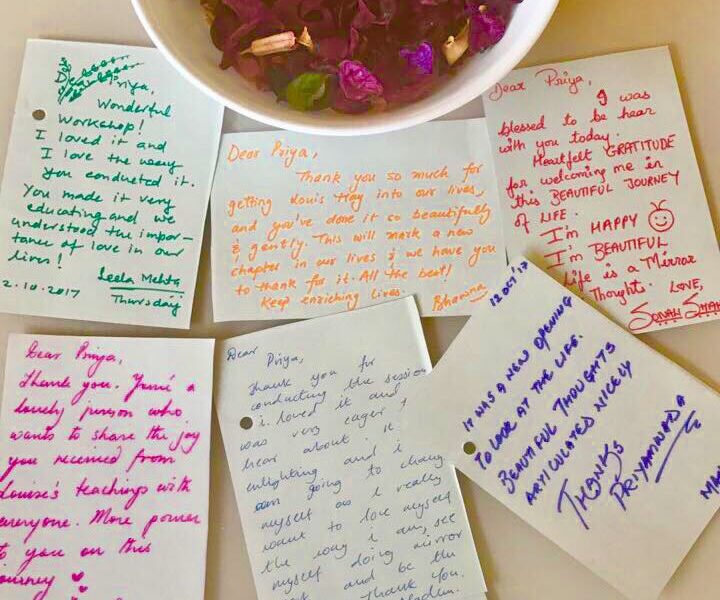 Dear Priya,
Wonderful
Workshop!
I loved it and
I love the way
you conducted it.
You made it very
educating and we
understood the impor-
tance of love in our
lives!
Leela Mehta
2.10.2017
Thursday
Dear Priya,
Thank you so much for
getting Louis Hay into our lives,
and you've done it so beautifully
& gently. This will mark a new
chapter in our lives & we have you
to thank for it. All the best!
Keep enriching lives.
Bhawna
Dear Priya,
I was
blessed to be hear
with you today.
Heartfelt GRATITUDE
for welcoming me in
this BEAUTIFUL JOURNEY
of LIFE.
I'm HAPPY
I'm BEAUTIFUL
Life is a Mirror
Thoughts. LOVE,
Dear Priya,
Thank you. You're a
lovely person who
wants to share the joy
you received from
Louise's teachings with
everyone. More power
to you on this
journey
Dear
Priya,
Thank you for
conducting the session
i loved it and
was very eager
hear about it
enlighting and i
am going to chang
myself as i really
want to love myself
the way i am, see
myself doing mirror
and be the
thank you.
12 Oct '17
IT WAS A NEW OPENING
TO LOOK AT THE LIFE.
BEAUTIFUL THOUGHTS
ARTICULATED NICELY
THANKS
PRIYAMVADA